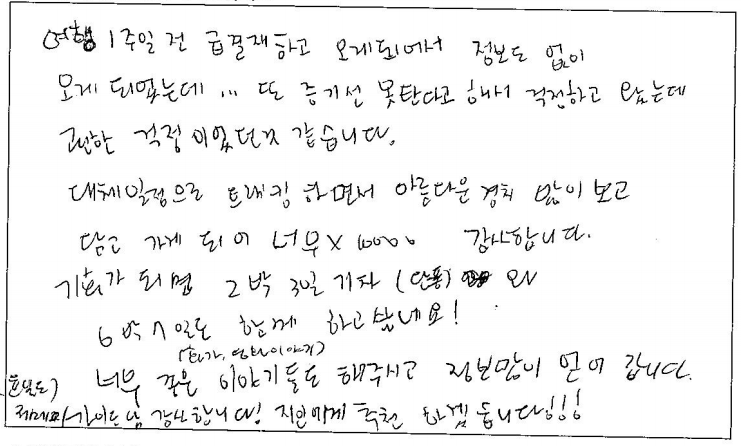 여행 1주일 전 급결재하고 오게되어서 정보도 없이
오게 되었는데 ... 또 증기선 못탄다고 해서 걱정하고 왔는데
괜한 걱정이었던것 같습니다.
대체일정으로 트래킹 하면서 아름다운 경치 많이 보고
담고 가게 되어 너무 X 10000 감사합니다.
기회가 되면 2박 3일 기차 (단풍) 와
6박 7일도 함께 하고 싶네요!
(화가, 영화이야기)
너무 좋은 이야기들도 해주시고 정보많이 얻어 갑니다.
가이드님 감사합니다! 지인에게 추천 하겠습니다!!!